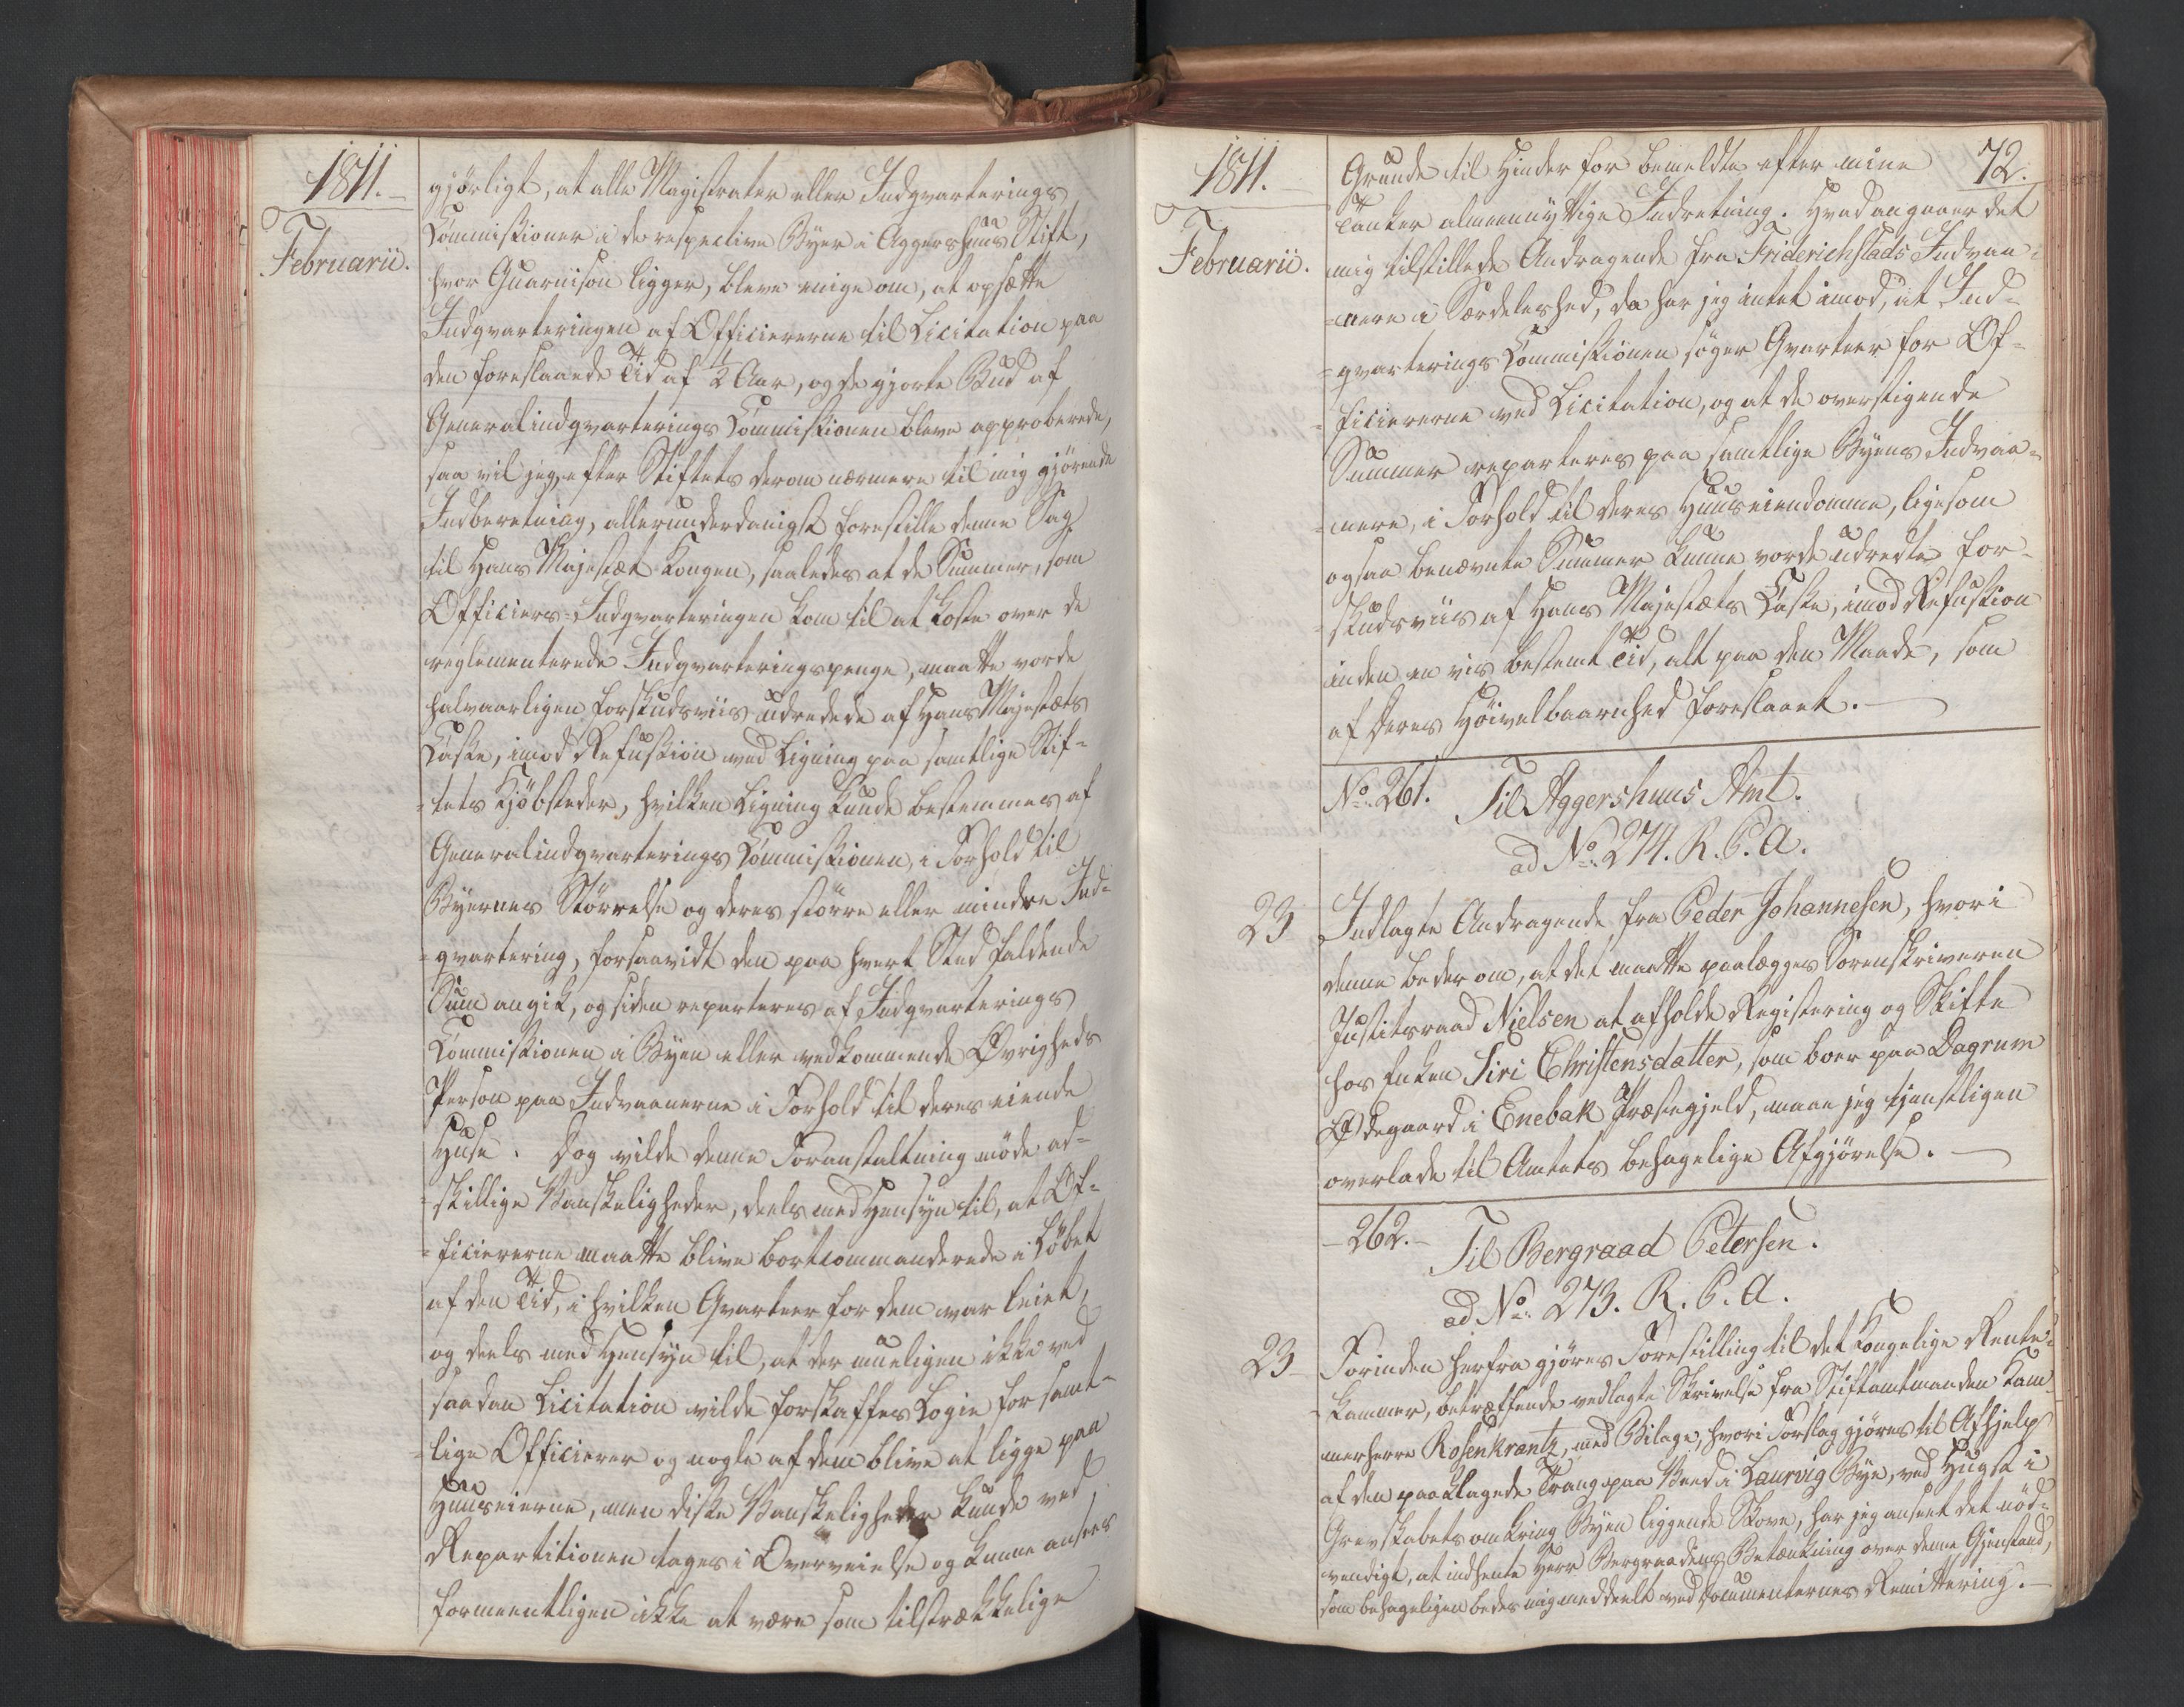 1811.
Februarii.
gjørligt, at alle Magistrater eller Indqvarterings
Commissioner i de respective Byer i Aggershuus Stift,
hvor Guarnison ligger, bleve enige om, at opsætte
Indqvarteringen af Officiererne til Licitation paa
den foreslaaede Tid af 2 Aar, og de gjorte Bud af
Generalindqvarterings Commissionen bleve approberede,
saa vil jeg, efter Stiftets derom nærmere til mig gjørende
Indberetning, allerunderdanigst forestille denne Sag
til Hans Majestæt Kongen, saaledes at de Summer, som
Officiers-Indqvarteringen kom til at koste over de
reglementerede Indqvarteringspenge, maatte vorde
halvaarligen forskudsviis udredede af Hans Majestæts
Casse, imod Refussion ved Ligning paa samtlige Stif-
-tets Kjøbsteder, hvilken Ligning kunde bestemmes af
Generalindqvarterings Commissionen, i Forhold til
Byernes Størrelse og deres større eller mindre Ind-
-qvartering, forsaavidt den paa hvert Sted faldende
Sum angik, og siden reparteres af Indqvarterings
Commissionen i Byen eller vedkommende Øvrigheds
Person paa Indvaanerne i Forhold til deres eiende
Huse. Dog vilde denne Foranstaltning møde ad-
-skillige Vanskeligheder, deels med Hensyn til, at Of-
-ficiererne maatte blive bortcommanderede i Løbet
af den Tid, i hvilken Qvarteer for dem var leiet,
og deels med Hensyn til, at der mueligen ikke ved
saadan Licitation vilde forskaffes Logie for samt-
lige Officierer og nogle af dem blive at ligge paa
Huuseierne, men disse Vanskeligheder kunde ved
Repartitionen tages i Overveielse og kunne ansees
formeentligen ikke at være som tilstrækkelige
1811.
72.
Februarii.
Grunde til Hinder for bemeldte efter mine
Tanker almeennyttige Indretning. Hvad angaaer det
mig tilstillede Andragende fra Friderichstads Indvaa-
-nere i Særdeleshed, da har jeg intet imod, at Ind-
-qvarterings Commissionen søger Qvarteer for Of-
-ficiererne ved Licitation, og at de overstigende
Summer reparteres paa samtlige Byens Indvaa-
-nere, i Forhold til deres Huuseiendomme, ligesom
ogsaa benævnte Summer kunne vorde udredte for-
-skudsviis af Hans Majestæts Casse, imod Refussion
inden en vis bestemt Tid, alt paa den Maade, som
af Deres Høivelbaarnhed foreslaaet.
No. 261. Til Aggershuus Amt.
ad No. 274. R. P. A.
23 Indlagte Andragende fra Peder Johannesen, hvori
denne beder om, at det maatte paalægges Sorenskriveren
Justitsraad Nielsen at afholde Registering og Skifte
hos Enken Siri Christensdatter, som boer paa Dagrum
Ødegaard i Enebak Præstegjeld, maae jeg tjenstligen
overlade til Amtets behagelige Afgjørelse.
-262.- Til Bergraad Petersen.
ad No. 273. R. P. A.
23 Forinden herfra gjøres Forestilling til det Kongelige Rente-
-kammer, betræffende vedlagte Skrivelse fra Stiftamtmanden Kam-
merherre Rosenkrantz, med Bilage, hvori Forslag gjøres til Afhjelp
af den paaklagede Trang paa Veed i Laurvig Bye, ved Hugst i
Grevskabets omkring Byen liggende Skove, har jeg anseet det nød-
vendigt, at indhente Herr Bergraadens Betænkning over denne Gjenstand,
som behageligen bedes mig meddeelt ved Documenternes Remittering.